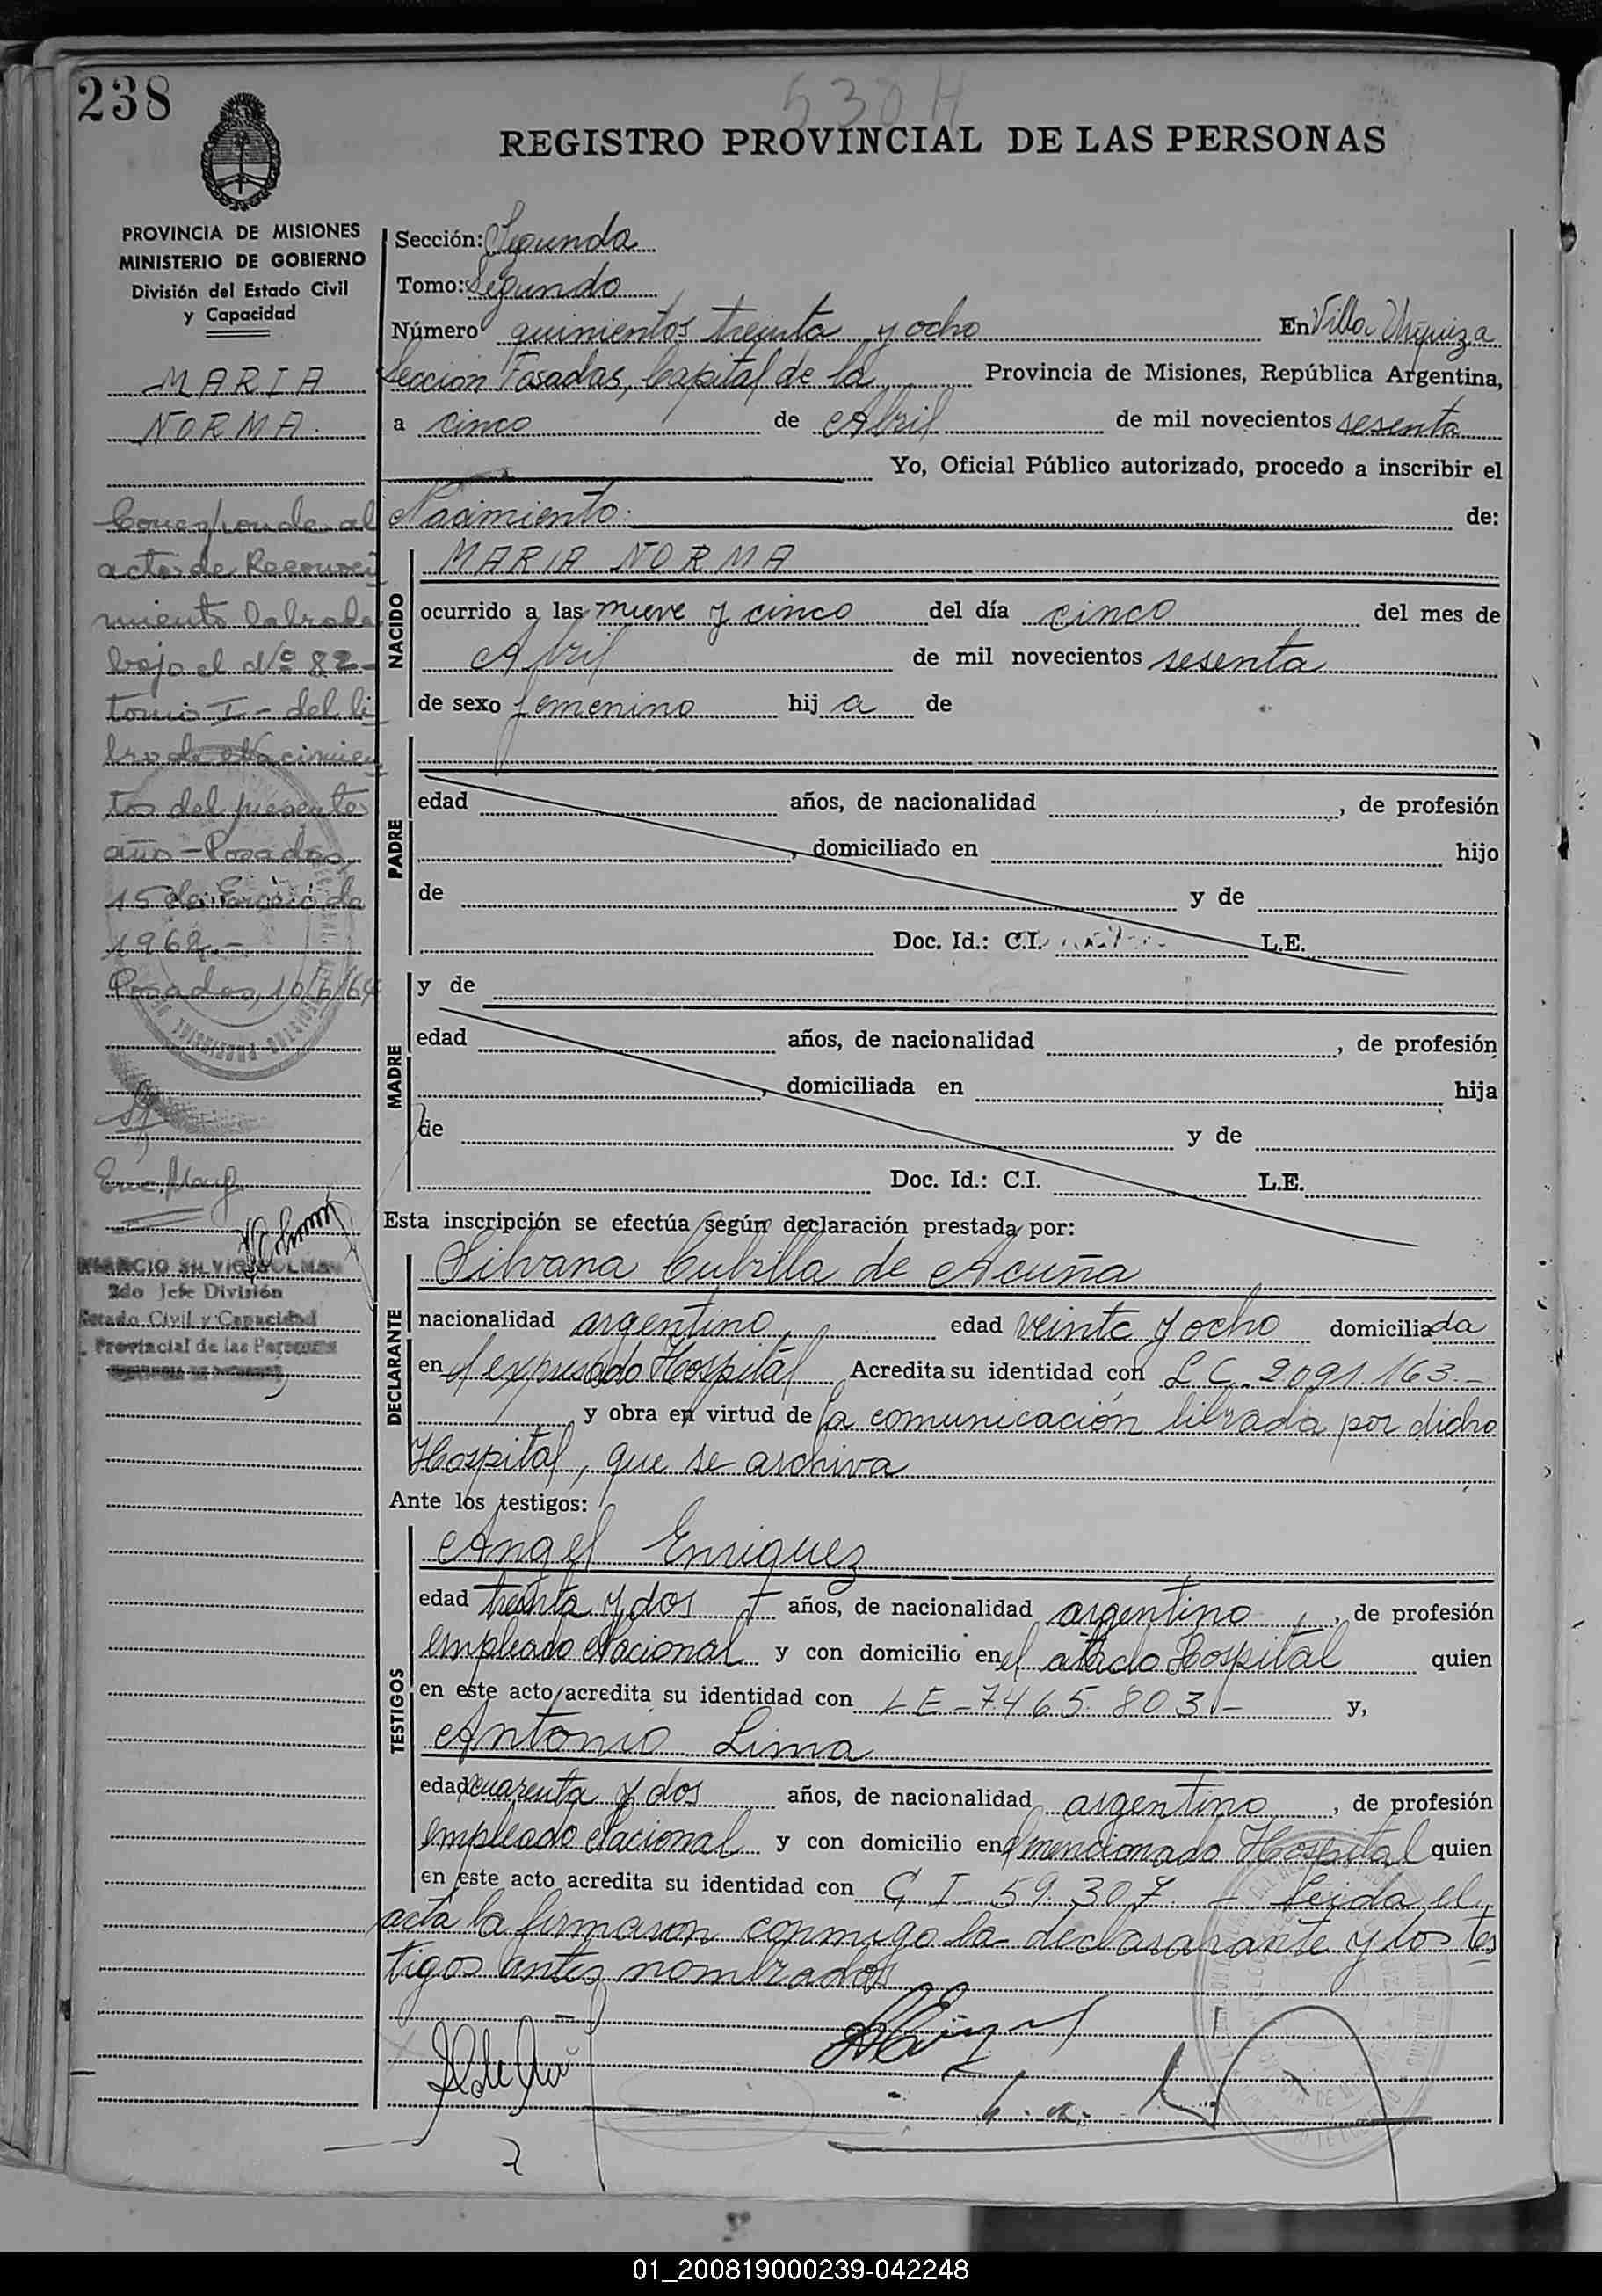 238
538 H
REGISTRO PROVINCIAL DE LAS PERSONAS
PROVINCIA DE MISIONES
MINISTERIO DE GOBIERNO
División del Estado Civil
y Capacidad
MARIA
NORMA.
Corresponde al
acta de Reconoci
miento labrada
bajo el Nº 82-
tomo I - del li
bro de Nacimien
tos del presente
año - Posadas,
15 de de
196
Posadas, 10/6/64
2do Jefe División
Estado Civil y Capacidad
Provincial de las Personas
Sección: Segunda
Tomo: Segundo
Número quinientos treinta y ocho En Villa Urquiza
Sección Posadas, Capital de la Provincia de Misiones, República Argentina,
a cinco de Abril de mil novecientos sesenta
Yo, Oficial Público autorizado, procedo a inscribir el
Nacimiento: de:
NACIDO
MARIA NORMA
ocurrido a las nueve y cinco del día cinco del mes de
Abril de mil novecientos sesenta
de sexo femenino hij a de
PADRE
edad años, de nacionalidad , de profesión
, domiciliado en hijo
de y de
Doc. Id.: C.I. L.E.
MADRE
y de
edad años, de nacionalidad , de profesión
, domiciliada en hija
de y de
Doc. Id.: C.I. L.E.
Esta inscripción se efectúa según declaración prestada por:
DECLARANTE
Silvana Cubilla de Acuña
nacionalidad argentino, edad veinte y ocho domiciliada
en el expresado Hospital Acredita su identidad con L C. 2091.163.-
y obra en virtud de la comunicación librada por dicho
Hospital, que se archiva
Ante los testigos:
TESTIGOS
Angel Enriquez
edad treinta y dos años, de nacionalidad argentino, de profesión
empleado Nacional y con domicilio en el citado Hospital quien
en este acto acredita su identidad con L E - 7465.803 - y,
Antonio Lima
edad cuarenta y dos años, de nacionalidad argentino, de profesión
empleado Nacional y con domicilio en el mencionado Hospital quien
en este acto acredita su identidad con C I 59.307 - Leida el
acta la firmaron conmigo la declararante y los tes
tigos antes nombrados
01_200819000239-042248